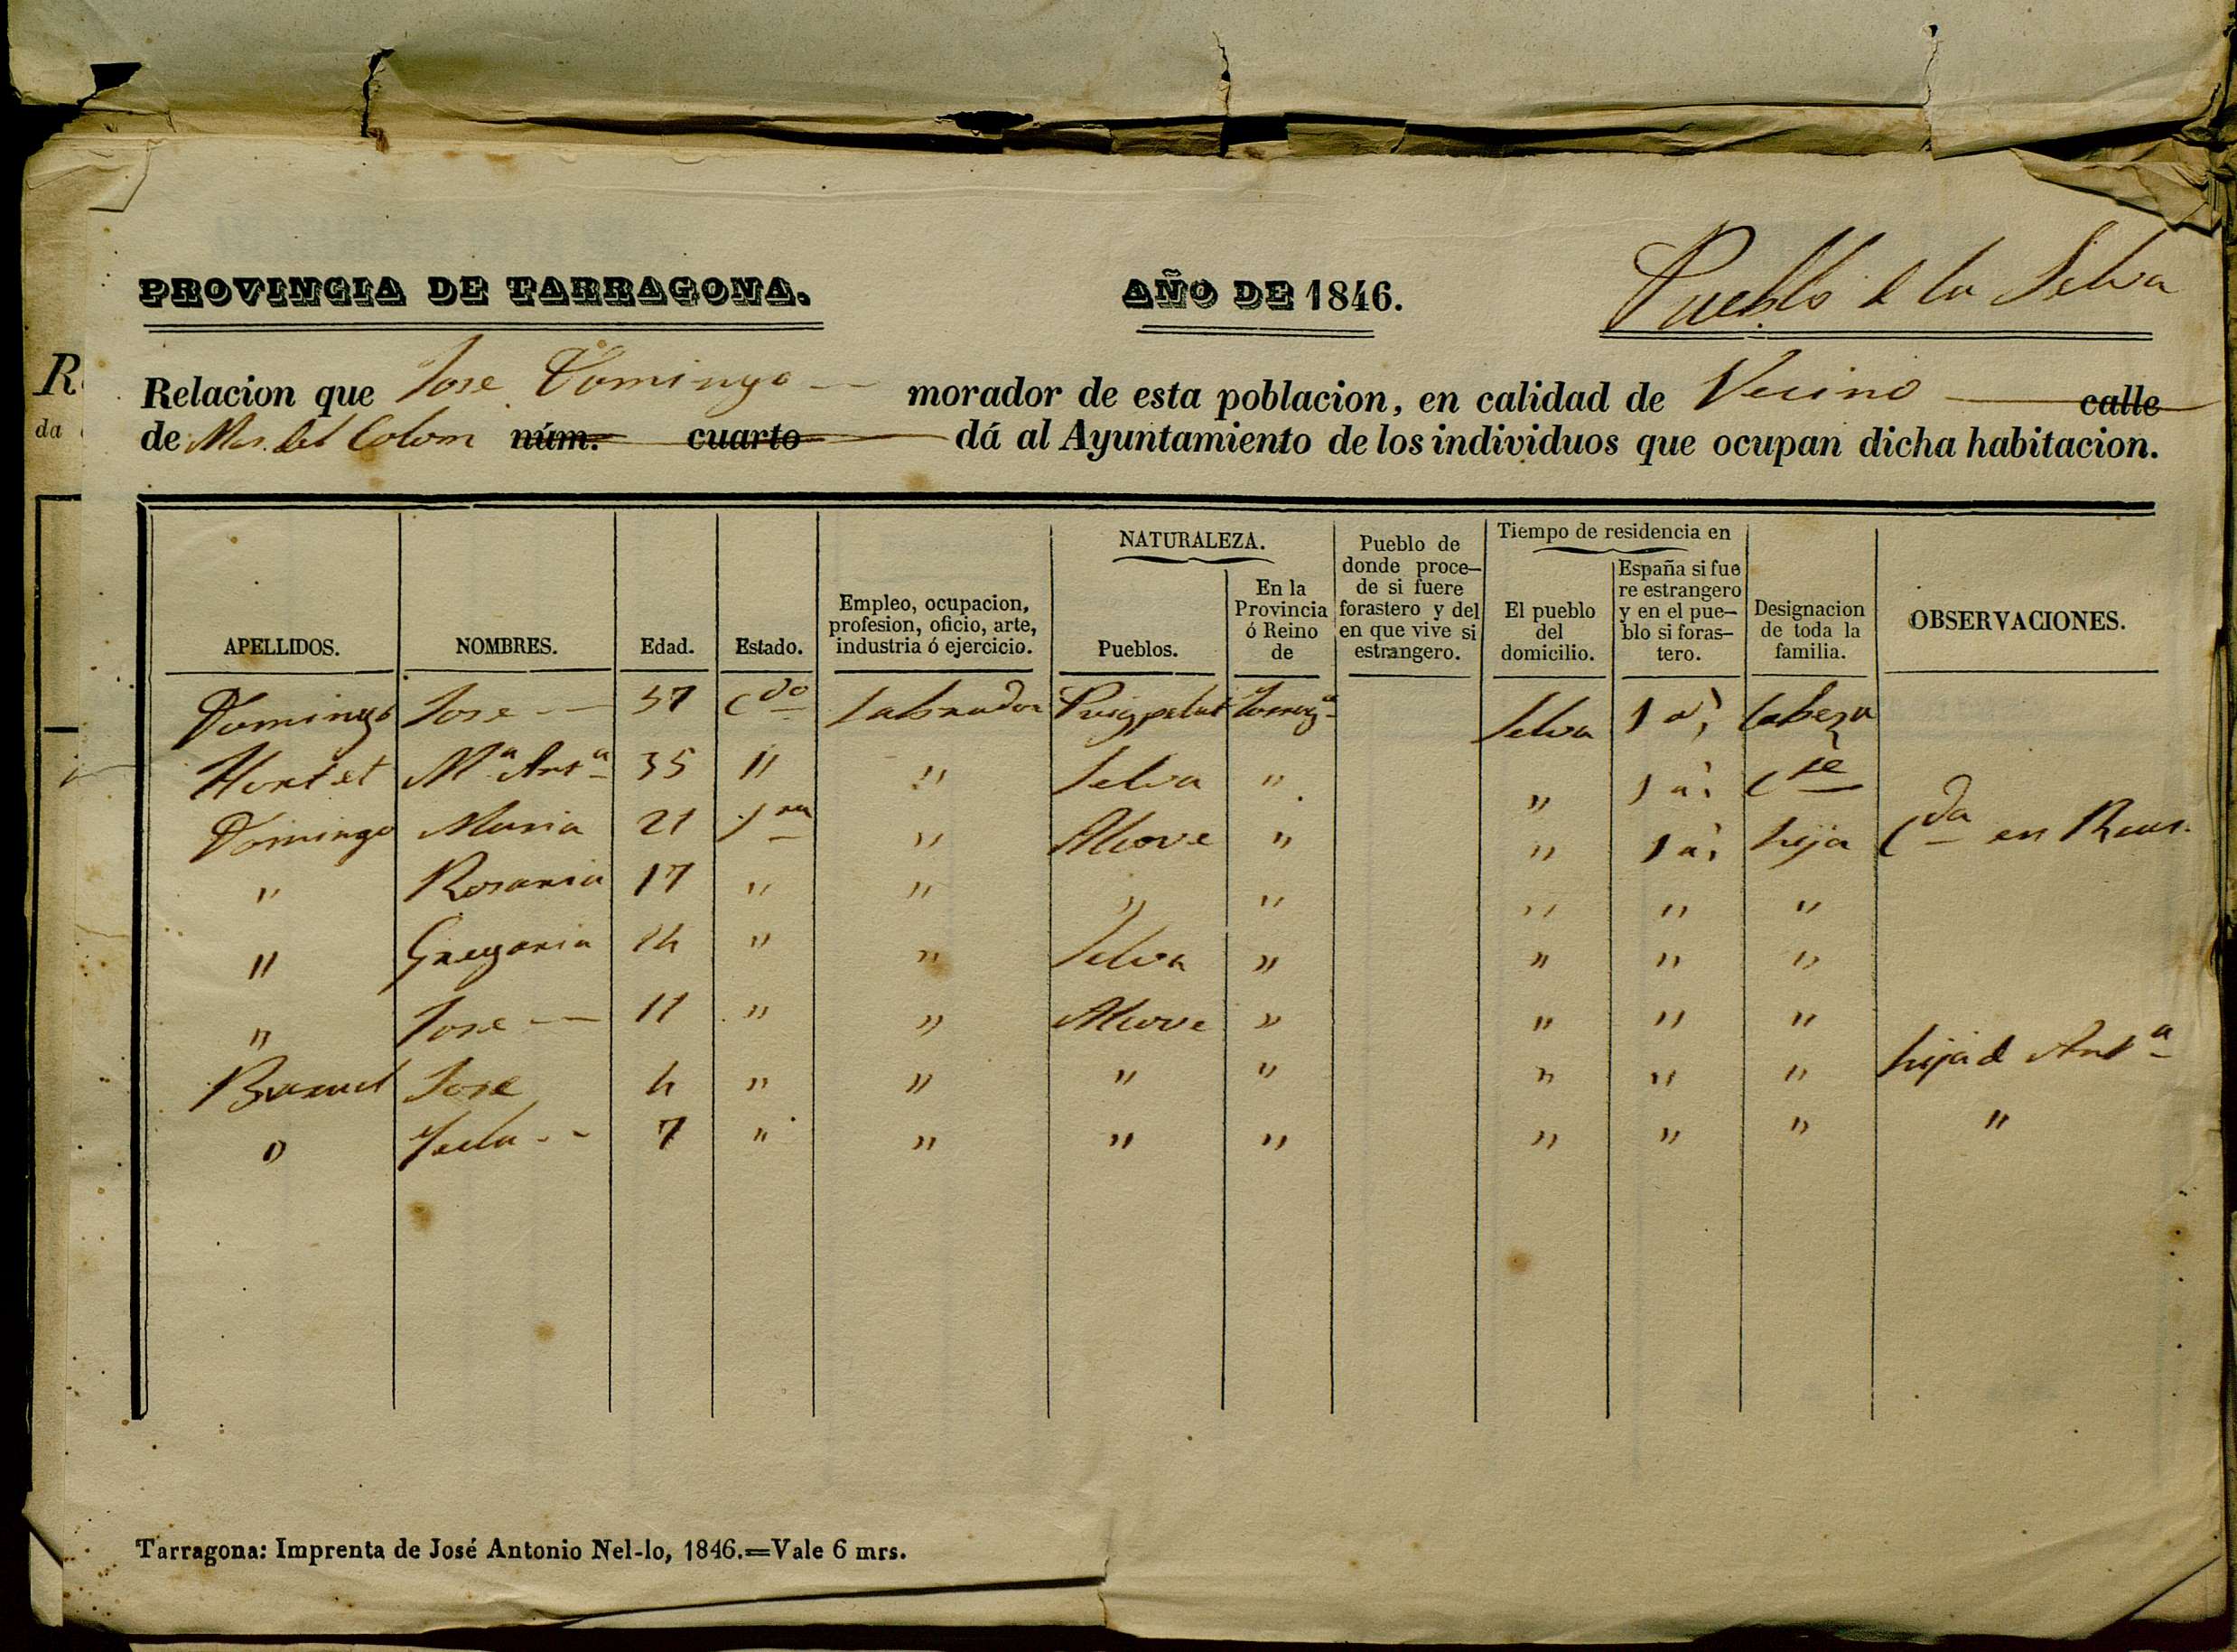 PROVINCIA DE TARRAGONA. AÑO DE 1846. Pueblo d la Selva
Relacion que Jose Domingo morador de esta poblacion, en calidad de Vecino calle
de Mas del Colom núm. cuarto dá al Ayuntamiento de los individuos que ocupan dicha habitacion.
R
da
APELLIDOS.
NOMBRES.
Edad.
Estado.
Empleo, ocupacion,
profesion, oficio, arte,
industria ó ejercicio.
NATURALEZA.
Pueblos.
En la
Provincia
ó Reino
de
Pueblo de
donde proce-
de si fuere
forastero y del
en que vive si
estrangero.
Tiempo de residencia en
El pueblo
del
domicilio.
España si fue
re estrangero
y en el pue-
blo si foras-
tero.
Designacion
de toda la
familia.
OBSERVACIONES.
Domingo Jose 37 Cdo Labrador Puigpelat Tarrag.a Selva 1 a, Cabeza
Hortet Ma Anta 35 " " Selva " " 1 a,
Domingo Maria 21 " Alcove " " 1 a, hija Cda en Reus.
" Rosaria 17 " " " " " " "
" Gregoria 14 " " Selva " " " "
" Jose 11 " " Alcove " " " "
Jose 4 " " " " " " " hija d Anta
" Tecla 7 " " " " " " " "
Tarragona: Imprenta de José Antonio Nel-lo, 1846.=Vale 6 mrs.